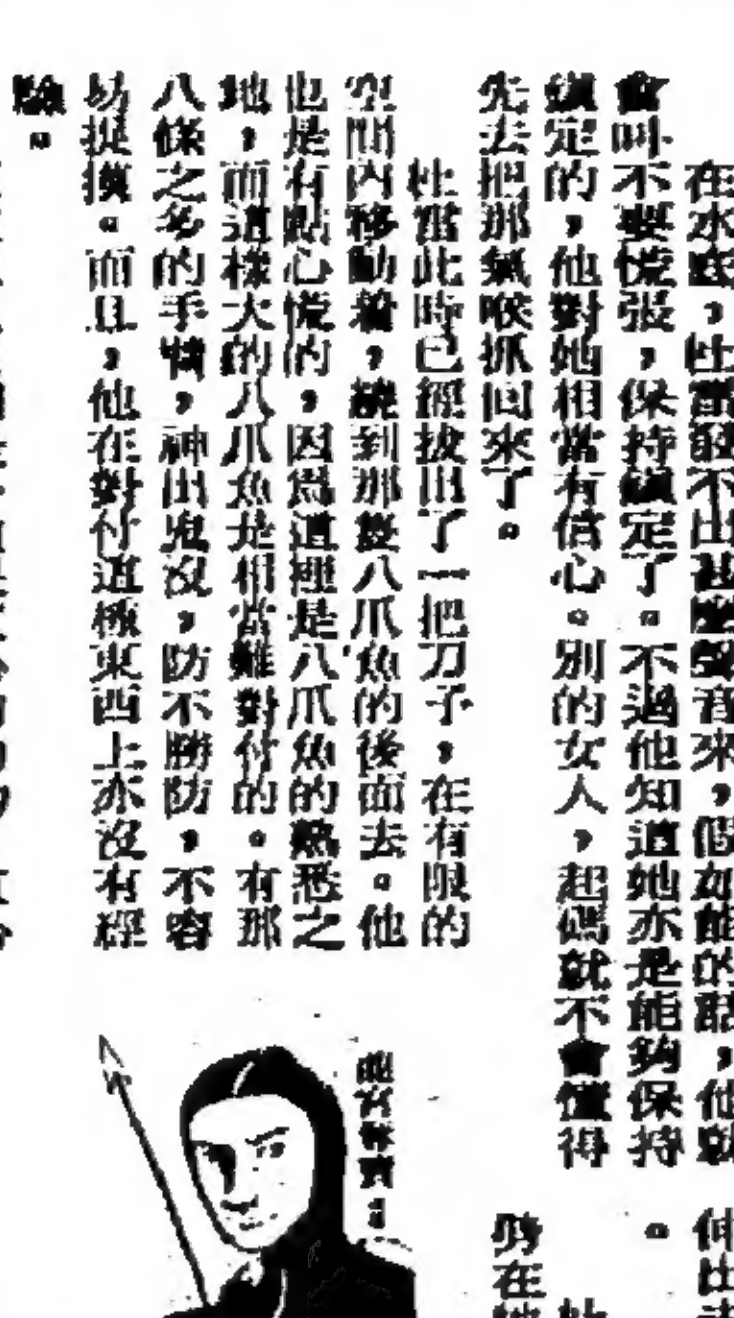 在水底，杜雷發不出甚麼聲音來，假如能的話，他就
會叫不要慌張，保持鎮定了。不過他知道她亦是能夠保持
鎮定的，他對她相當有信心。別的女人，起碼就不會懂得
先去把那氣喉抓回來了。
杜雷此時已經拔出了一把刀子，在有限的
空間內移動着，繞到那隻八爪魚的後面去。他
也是有點心慌的，因爲這裡是八爪魚的熟悉之
地，而這樣大的八爪魚是相當難對付的。有那
八條之多的手臂，神出鬼沒，防不勝防，不容
易捉摸。而且，他在對付這種東西上亦沒有經
驗。
龍宮尋寶